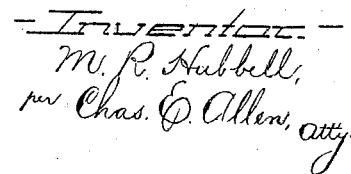 -Inventor.-
M. R. Hubbell,
per Chas. E. Allen, atty.